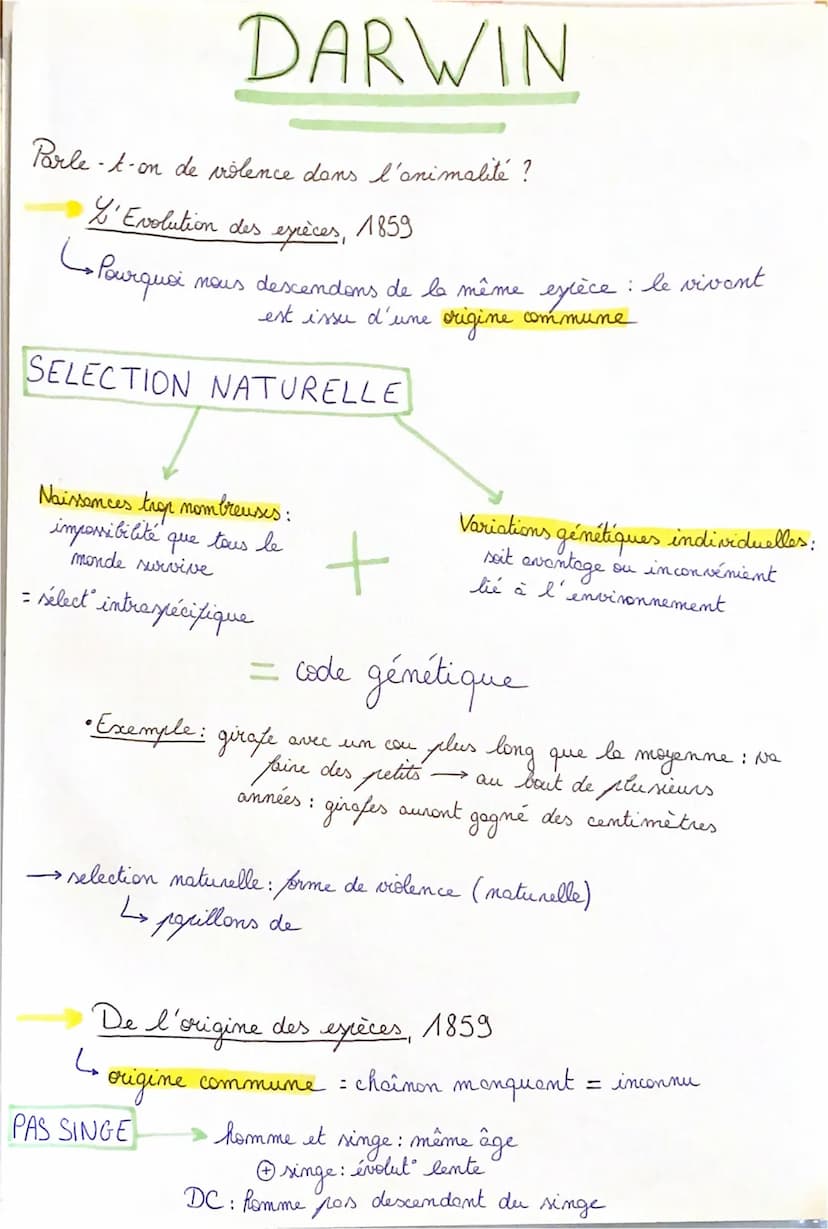 DARWIN
Parle-t-on de violence dans l'animalité ?
L'Evolution des espèces, 1859
Pourquoi nous descendons de la même espèce : le vivant
est issu d'une origine commune
SELECTION NATURELLE
Naissances trop nombreuses :
impossibilité que tous le
monde survive
= sélect° intraspécifique
+
Variations génétiques individuelles :
soit avantage ou inconvénient
lié à l'environnement
= code génétique
• Exemple : girafe avec un cou plus long que la moyenne : va
faire des petits → au bout de plusieurs
années : girafes auront gagné des centimètres
→ selection naturelle : forme de violence (naturelle)
↳ papillons de
De l'origine des espèces, 1859
↳ origine commune = chaînon manquant = inconnu
PAS SINGE → homme et singe : même âge
⊕ singe : évolut° lente
DC : homme pas descendant du singe